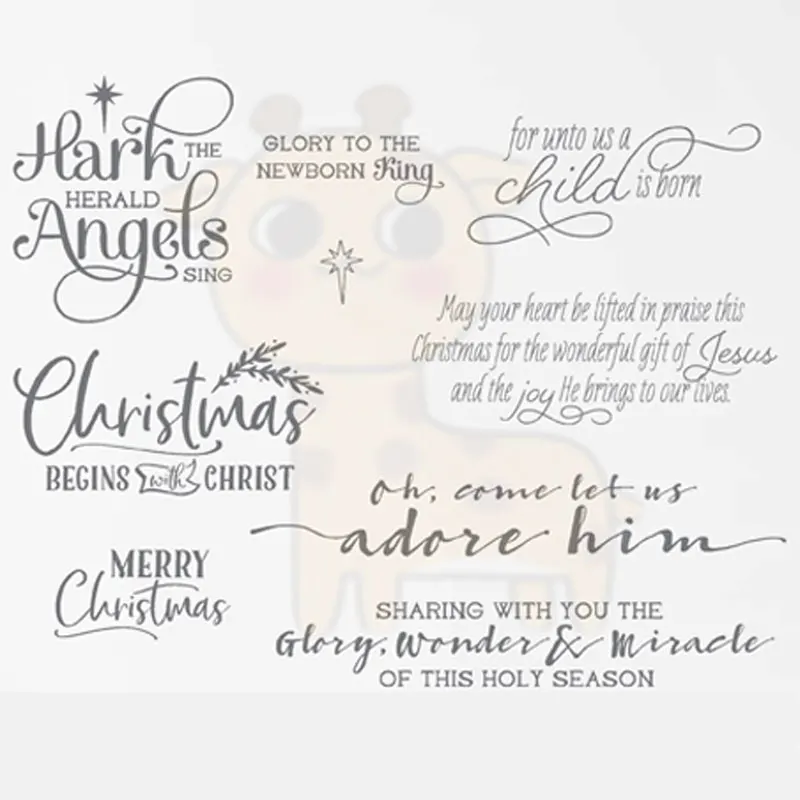 Hark THE
HERALD
Angels
SING
GLORY TO THE
NEWBORN King
for unto us a
child is born
May your heart be lifted in praise this
Christmas for the wonderful gift of Jesus
and the joy He brings to our lives.
Christmas
BEGINS with CHRIST
Oh, come let us
adore him
MERRY
Christmas
SHARING WITH YOU THE
Glory, Wonder & Miracle
OF THIS HOLY SEASON